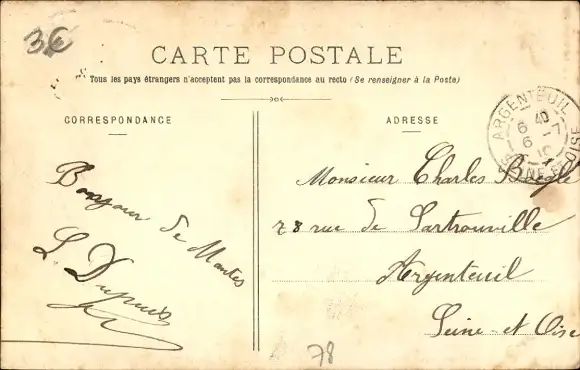 36
CARTE POSTALE
Tous les pays étrangers n'acceptent pas la correspondance au recto (Se renseigner à la Poste)
CORRESPONDANCE
Bonjour de Mantes
L. Dupuis
ADRESSE
ARGENTEUIL
6 40
6 -7
10
SEINE-ET-OISE
Monsieur Charles
78 rue de Sartrouville
Argenteuil
Seine-et-Oise
78